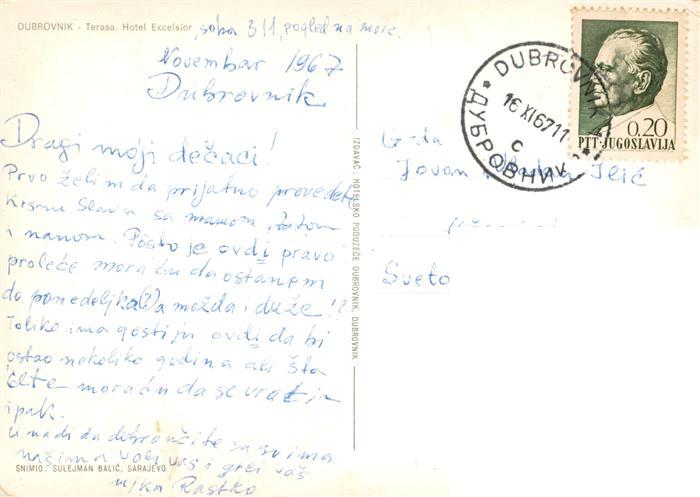 DUBROVNIK - Terasa, Hotel Excelsior, soba 311, pogled na more.
Novembar 1967
Dubrovnik
Dragi moji dečaci!
Prvo želim da prijatno provedete
Krsnu Slavu sa mamom, tatom
i nanom. Pošto je ovdi pravo
proleće moraću da ostanem
do ponedeljka(?) a možda i duže!?
Toliko ima gostiju ovdi da bi
ostao nekoliko godina ali šta
ćete moraću da se vratim
ipak.
U nadi da dobro učite sa svima
našima voli vas i grli vaš
ujka Rastko
SNIMIO: SULEJMAN BALIĆ, SARAJEVO
IZDAVAČ: HOTELSKO PODUZEĆE DUBROVNIK, DUBROVNIK
DUBROVNIK
16 XI 67 11
C
ДУБРОВНИК
0.20
PTT-JUGOSLAVIJA
G-da
Jovan Ilić
Sveto